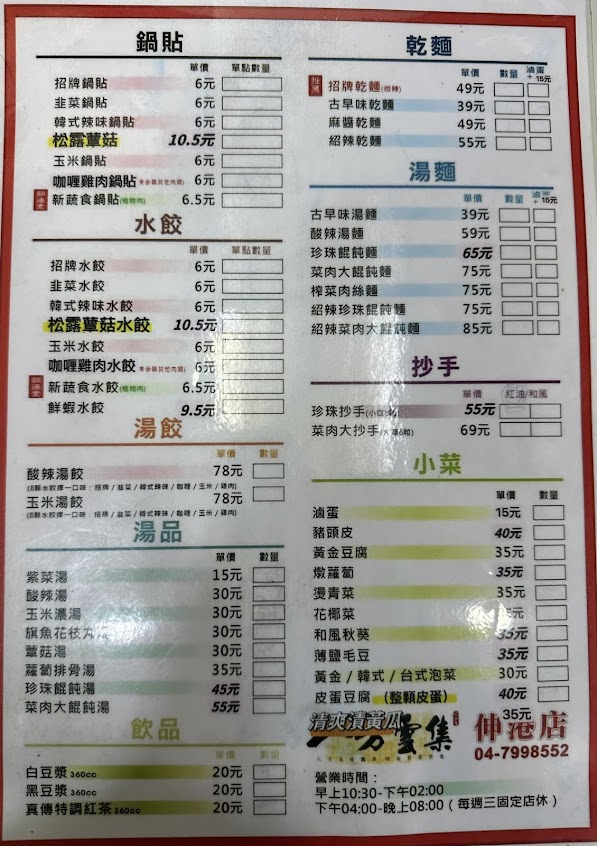 鍋貼
單價 單點數量
招牌鍋貼 6元
韭菜鍋貼 6元
韓式辣味鍋貼 6元
松露蕈菇 10.5元
玉米鍋貼 6元
咖喱雞肉鍋貼 6元
新蔬食鍋貼(植物肉) 6.5元
水餃
單價 單點數量
招牌水餃 6元
韭菜水餃 6元
韓式辣味水餃 6元
松露蕈菇水餃 10.5元
玉米水餃 6元
咖喱雞肉水餃 6元
新蔬食水餃(植物肉) 6.5元
鮮蝦水餃 9.5元
湯餃
單價 數量
酸辣湯餃 78元
(8顆水餃擇一口味：招牌/韭菜/韓式辣味/咖喱/玉米/雞肉)
玉米湯餃 78元
(8顆水餃擇一口味：招牌/韭菜/韓式辣味/咖喱/玉米/雞肉)
湯品
單價 數量
紫菜湯 15元
酸辣湯 30元
玉米濃湯 30元
旗魚花枝丸 30元
蕈菇湯 30元
蘿蔔排骨湯 35元
珍珠餛飩湯 45元
菜肉大餛飩湯 55元
飲品
單價 數量
白豆漿 360cc 20元
黑豆漿 360cc 20元
真傳特調紅茶 360cc 20元
乾麵
單價 數量 滷蛋+15元
推薦 招牌乾麵(微辣) 49元
古早味乾麵 39元
麻醬乾麵 49元
紹辣乾麵 55元
湯麵
單價 數量 滷蛋+15元
古早味湯麵 39元
酸辣湯麵 59元
珍珠餛飩麵 65元
菜肉大餛飩麵 75元
榨菜肉絲麵 75元
紹辣珍珠餛飩麵 75元
紹辣菜肉大餛飩麵 85元
抄手
單價 紅油/和風
珍珠抄手 55元
菜肉大抄手 69元
小菜
單價 數量
滷蛋 15元
豬頭皮 40元
黃金豆腐 35元
燉蘿蔔 35元
燙青菜 35元
花椰菜
和風秋葵 35元
薄鹽毛豆 35元
黃金/韓式/台式泡菜 30元
皮蛋豆腐 (整顆皮蛋) 40元
清爽漬黃瓜 35元
雲集 伸港店
04-7998552
營業時間：
早上10:30-下午02:00
下午04:00-晚上08:00（每週三固定店休）